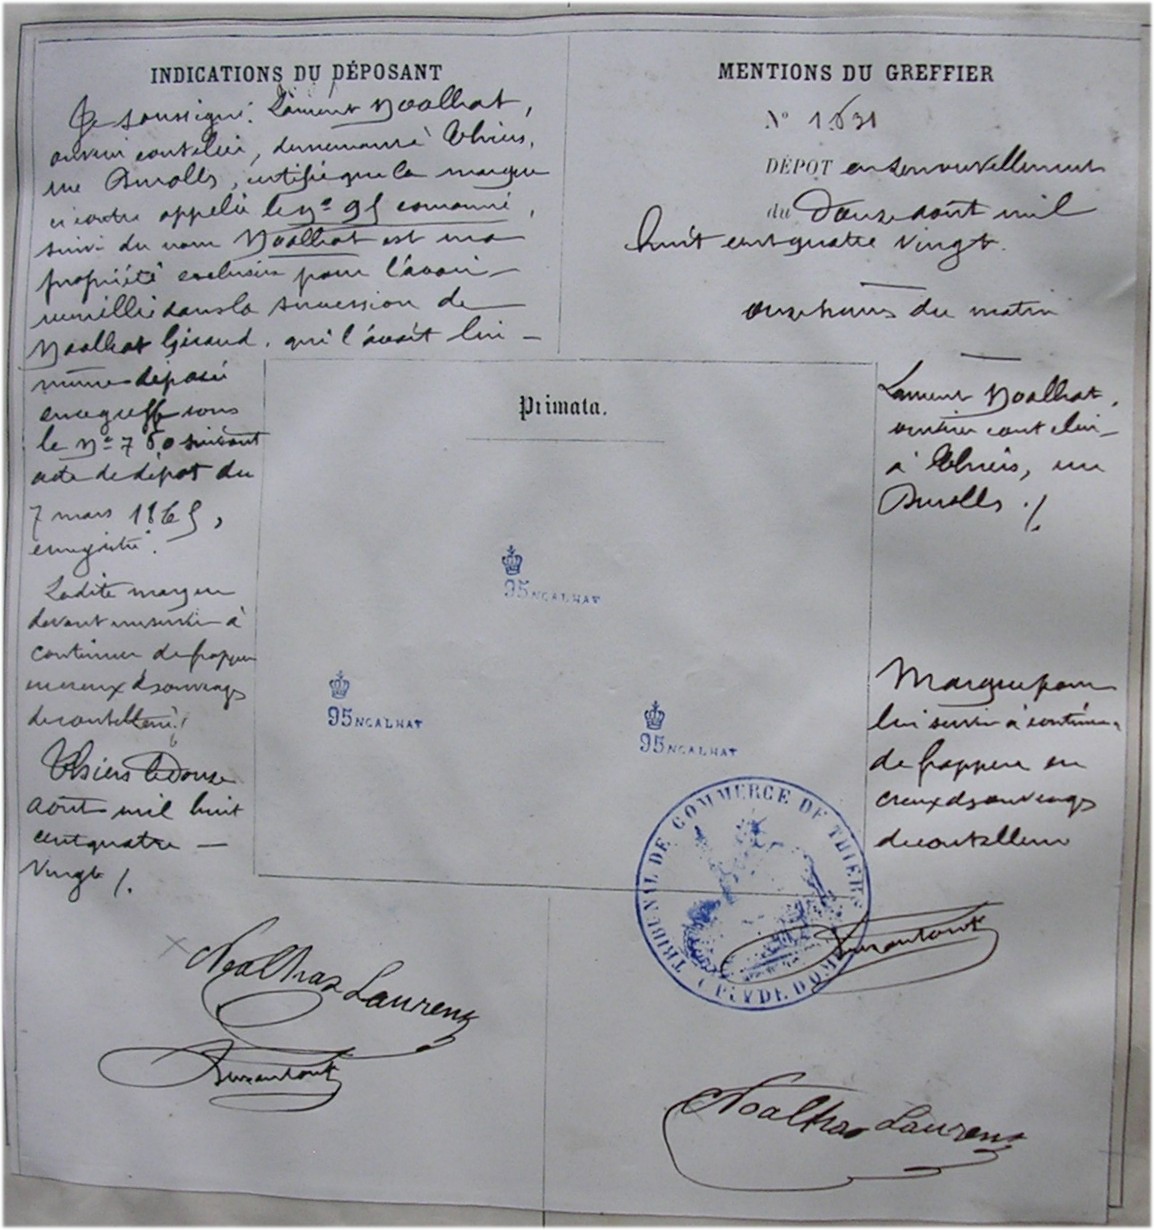 INDICATIONS DU DÉPOSANT
Je soussigné Laurent Noalhat,
ouvrier coutelier, demeurant à Thiers,
rue Durolle, certifie que la marque
ci contre appelée le nº 95 couronné,
suivi du nom Noalhat est ma
propriété exclusive pour l'avoir
recueillie dans la succession de
Noalhat Giraud, qui l'avait lui
même déposé
en ce greffe sous
le nº 760 suivant
acte de dépôt du
7 mars 1865,
enregistré.
Ladite marque
devant me servir à
continuer de frapper
en creux des ouvrages
de coutellerie.
Thiers le douze
août mil huit
cent quatre
vingt /.
Noalhat Laurent
MENTIONS DU GREFFIER
Nº 1631
DÉPOT en renouvellement
du Douze août mil
huit cent quatre vingt.
onze heures du matin
Laurent Noalhat,
ouvrier coutelier
à Thiers, rue
Durolle ./.
Marque pour
lui servir à continuer
de frapper en
creux des ouvrages
de coutellerie
Primata.
95 NOALHAT
95 NOALHAT
95 NOALHAT
TRIBUNAL DE COMMERCE DE THIERS
(PUY DE DOME)
Noalhat Laurent